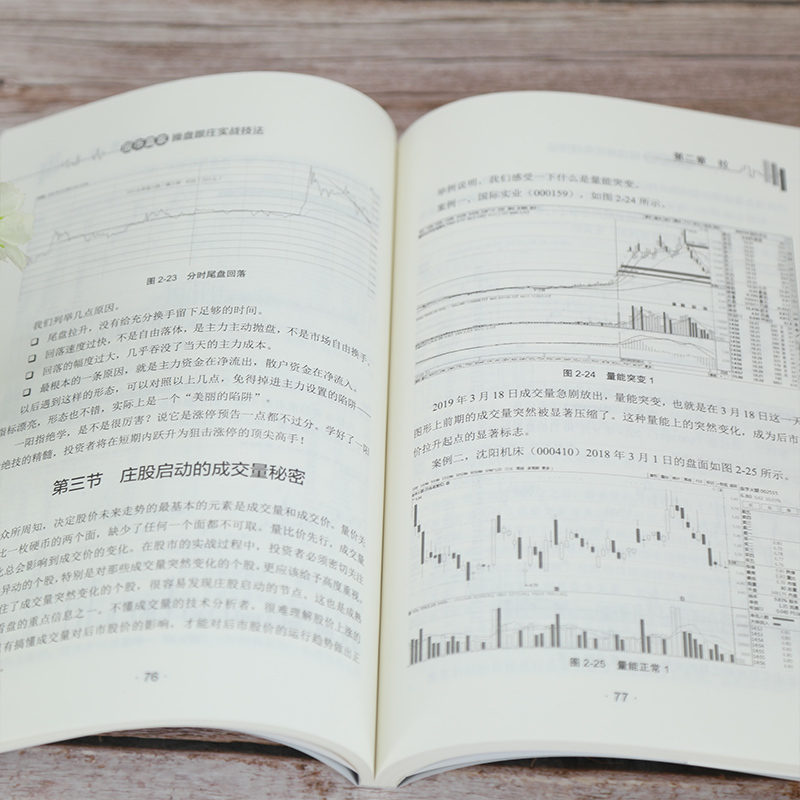 操盘跟庄实战技法
图 2-23 分时尾盘回落
我们列举几点原因。
❑ 尾盘拉升，没有给充分换手留下足够的时间。
❑ 回落速度过快，不是自由落体，是主力主动抛盘，不是市场自由换手。
❑ 回落的幅度过大，几乎吞没了当天的主力成本。
❑ 最根本的一条原因，就是主力资金在净流出，散户资金在净流入。
以后遇到这样的形态，可以对照以上几点，免得掉进主力设置的陷阱——
指标漂亮，形态也不错，实际上是一个“美丽的陷阱”。
一阳指绝学，是不是很厉害？说它是涨停预告一点都不过分。学好了一阳
绝技的精髓，投资者将在短期内跃升为狙击涨停的顶尖高手！
第三节 庄股启动的成交量秘密
众所周知，决定股价未来走势的最基本的元素是成交量和成交价。量价关
比一枚硬币的两个面，缺少了任何一个面都不可取。量比价先行，成交量
化总会影响到成交价的变化。在股市的实战过程中，投资者必须密切关注
异动的个股，特别是对那些成交量突然变化的个股，更应该给予高度重视。
住了成交量突然变化的个股，很容易发现庄股启动的节点，这也是成熟
看盘的重点信息之一。不懂成交量的技术分析者，很难理解股价上涨的
有搞懂成交量对后市股价的影响，才能对后市股价的运行趋势做出正
· 76 ·
第二章
举例说明，我们感受一下什么是量能突变。
案例一，国际实业（000159），如图 2-24 所示。
图 2-24 量能突变 1
2019 年 3 月 18 日成交量急剧放出，量能突变，也就是在 3 月 18 日这一天
图形上前期的成交量突然被显著压缩了。这种量能上的突然变化，成为后市
价拉升起点的显著标志。
案例二，沈阳机床（000410）2018 年 3 月 1 日的盘面如图 2-25 所示。
图 2-25 量能正常 1
· 77 ·